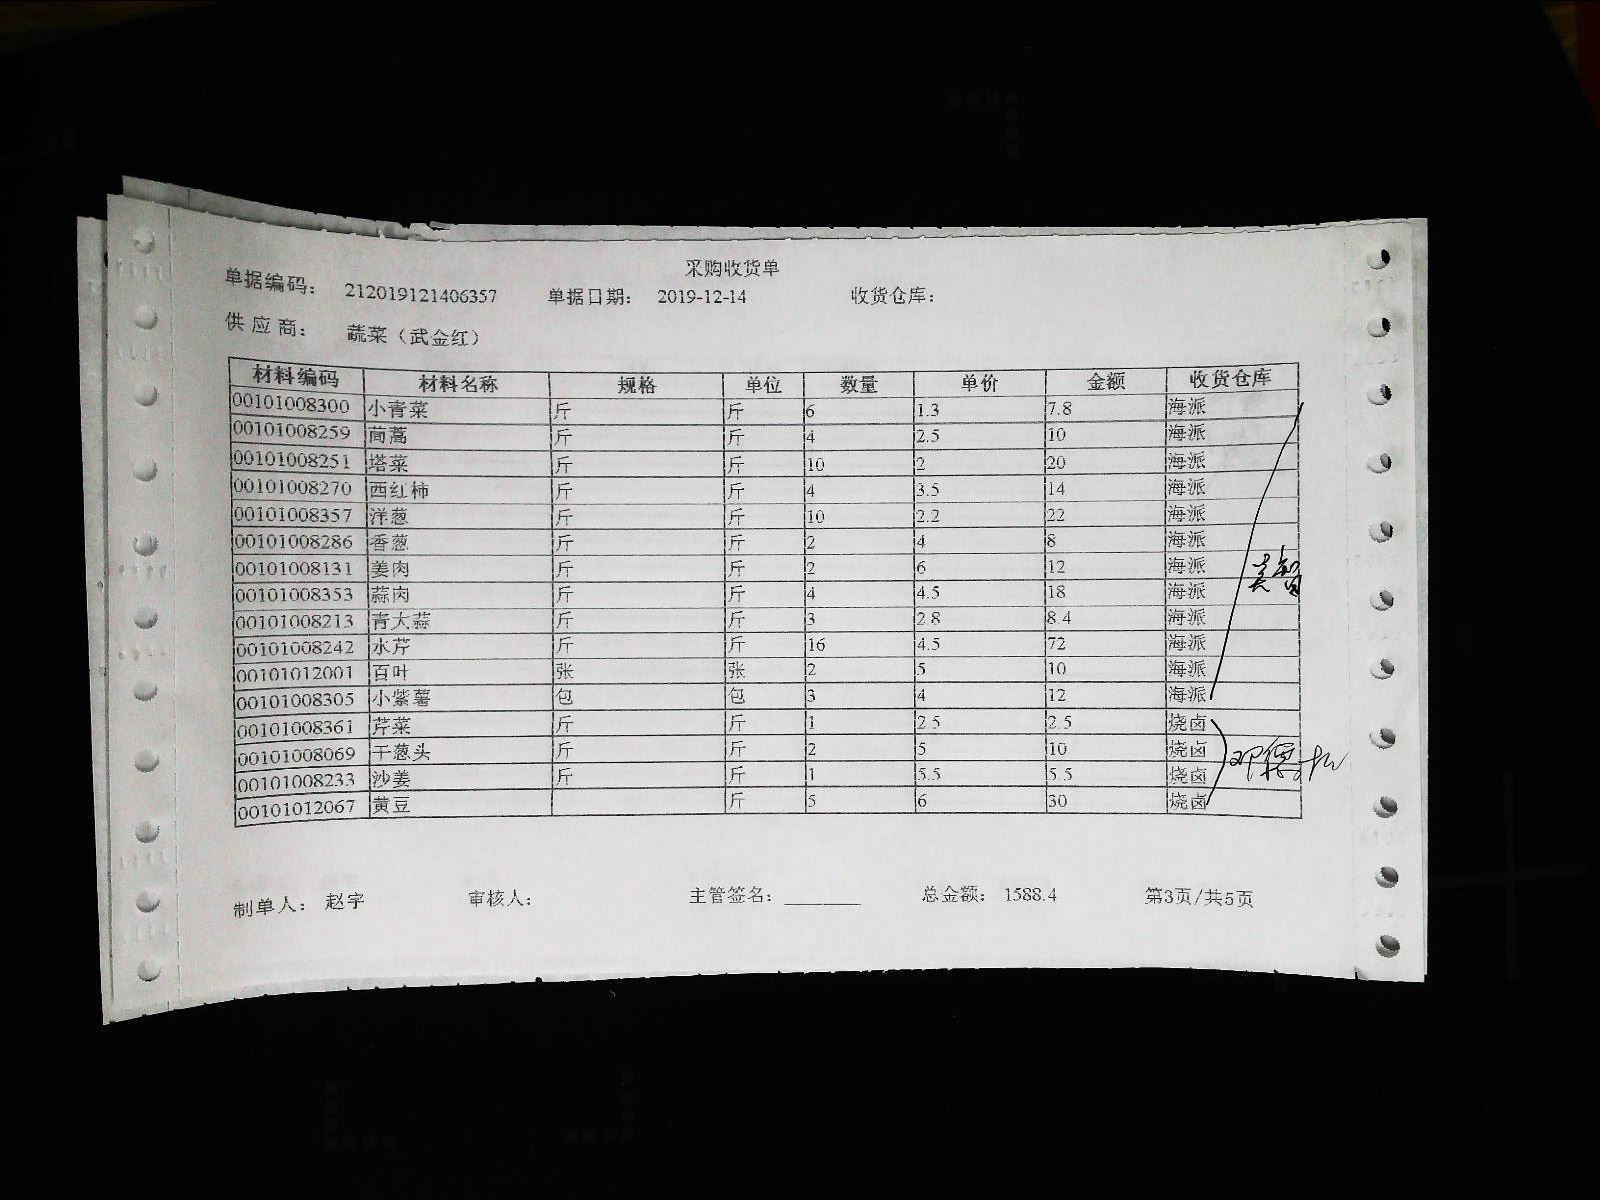 采购收货单
单据编码： 212019121406357 单据日期： 2019-12-14 收货仓库：
供应商： 蔬菜（武金红）
材料编码 材料名称 规格 单位 数量 单价 金额 收货仓库
00101008300 小青菜 斤 斤 6 1.3 7.8 海派
00101008259 茼蒿 斤 斤 4 2.5 10 海派
00101008251 塔菜 斤 斤 10 2 20 海派
00101008270 西红柿 斤 斤 4 3.5 14 海派
00101008357 洋葱 斤 斤 10 2.2 22 海派
00101008286 香葱 斤 斤 2 4 8 海派
00101008131 姜肉 斤 斤 2 6 12 海派
00101008353 蒜肉 斤 斤 4 4.5 18 海派
00101008213 青大蒜 斤 斤 3 2.8 8.4 海派
00101008242 水芹 斤 斤 16 4.5 72 海派
00101012001 百叶 张 张 2 5 10 海派
00101008305 小紫薯 包 包 3 4 12 海派
00101008361 芹菜 斤 斤 1 2.5 2.5 烧卤
00101008069 干葱头 斤 斤 2 5 10 烧卤
00101008233 沙姜 斤 斤 1 5.5 5.5 烧卤
00101012067 黄豆 斤 5 6 30 烧卤
制单人： 赵宇 审核人： 主管签名： 总金额： 1588.4 第3页/共5页